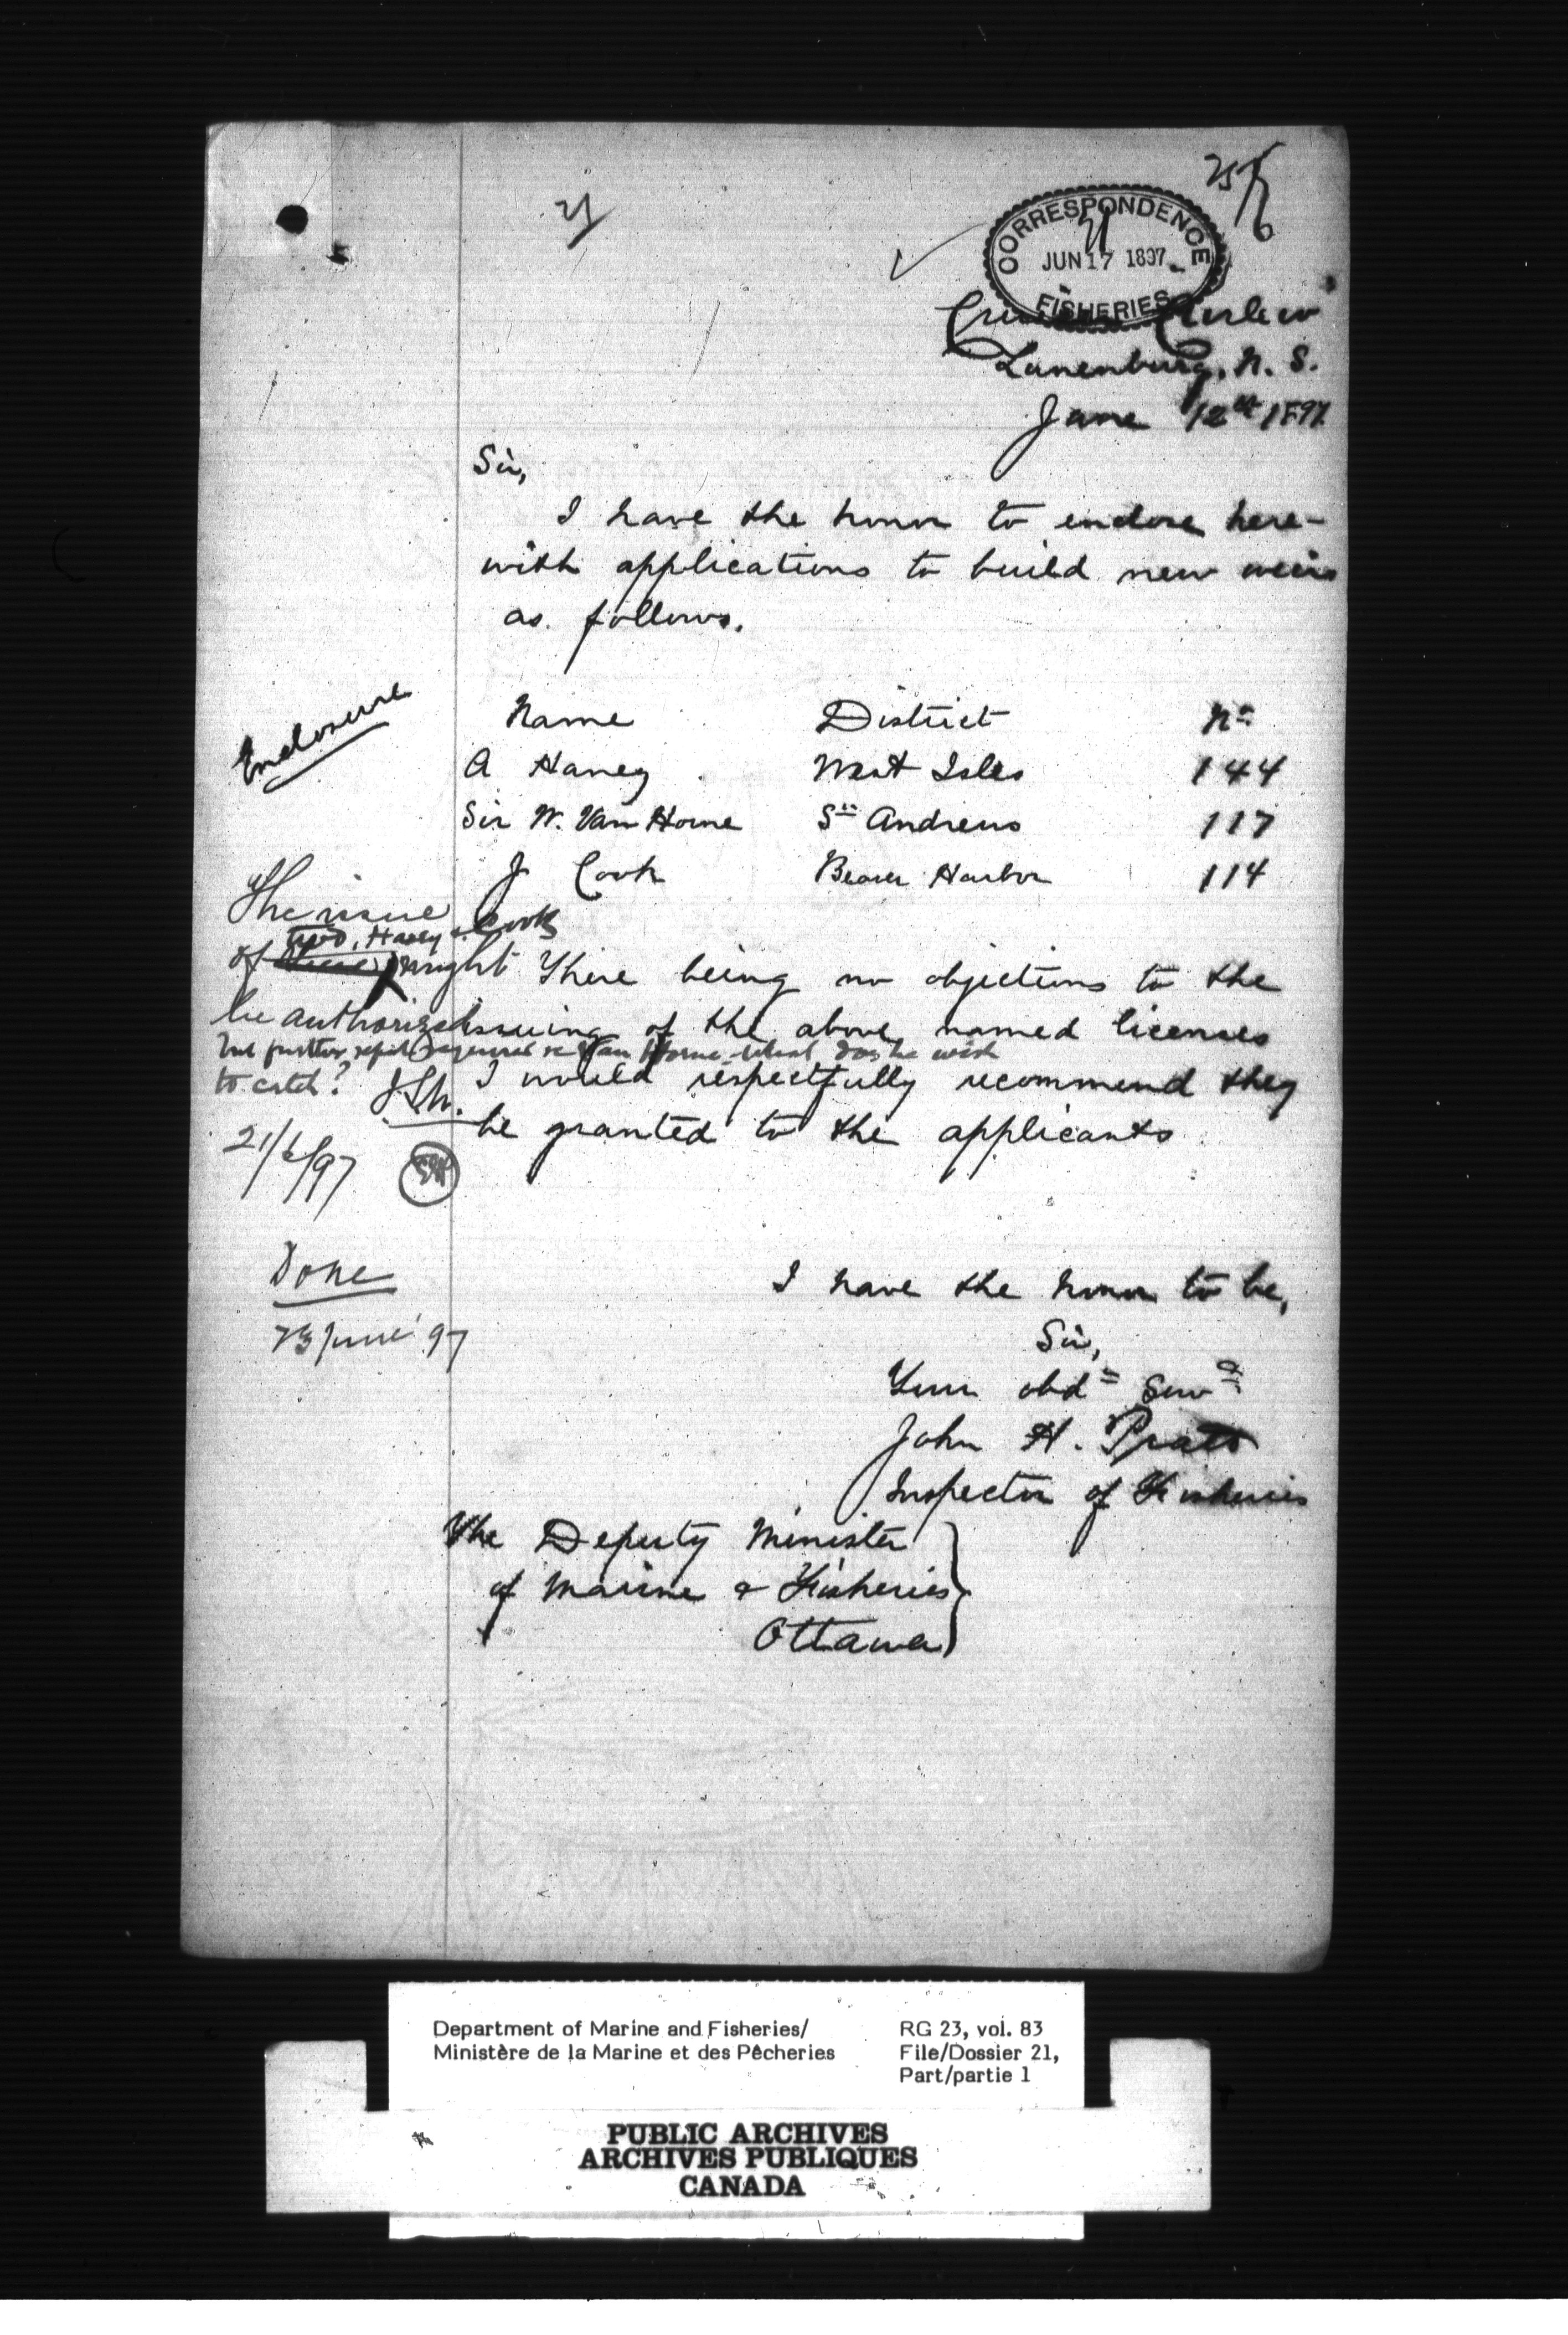 21
25/6
CORRESPONDENCE
21
JUN 17 1897
FISHERIES
Cruiser Curlew
Lunenburg, N. S.
June 12th 1897
Sir,
I have the honor to enclose here-
with applications to build new weirs
as follows.
Enclosure
Name District No
A Haney West Isles 144
Sir W. Van Horne St Andrews 117
J Cook Beaver Harbor 114
The issue
two, Haney & Cook
of these might
be authorized
but further report required re Van Horne. What does he wish
to catch?
21/6/97
There being no objections to the
issuing of the above named licenses
I would respectfully recommend they
be granted to the applicants
Done
23 June '97
I have the honor to be,
Sir,
Your obdt Servt
John H. Pratt
Inspector of Fisheries
The Deputy Minister
of Marine & Fisheries
Ottawa
Department of Marine and Fisheries/
Ministère de la Marine et des Pêcheries
RG 23, vol. 83
File/Dossier 21,
Part/partie 1
PUBLIC ARCHIVES
ARCHIVES PUBLIQUES
CANADA